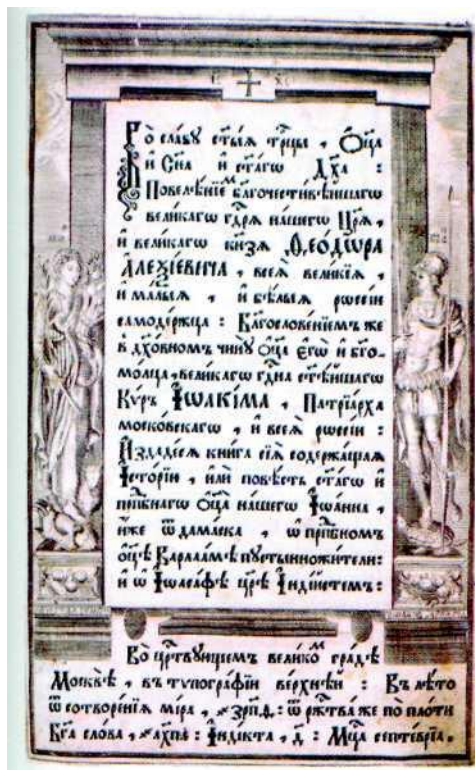 І҃С Х҃С
Во славу ст҃ыѧ трⷪ҇цы , Ѻ҆ц҃а
и҆ Сн҃а и҆ ст҃а́гѡ Дх҃а :
Повелѣ́нїеⷨ бл҃гочести́вѣйшагѡ
вели́кагѡ гдⷭ҇рѧ на́шегѡ Цр҃ѧ̀ ,
и҆ вели́кагѡ кн҃зѧ Ѳео́дѡра
А҆леѯі́евича , всеѧ̀ вели́кїѧ ,
и҆ ма́лыѧ , и҆ бѣ́лыѧ рѡссі́и
самоде́ржца : Бл҃гослове́нїемъ же
в̾ дх҃о́вномъ чи́нꙋ ѻ҆ц҃а̀ є҆гѡ̀ и҆ бг҃о-
мо́лца , вели́кагѡ гдⷭ҇на ст҃ѣ́йшагѡ
Кѵ́ръ І҆ѡакі́ма , Патрїа́рха
моско́вскагѡ , и҆ всеѧ̀ рѡссі́и :
И҆здаде́сѧ кни́га сїѧ̀ содержа́щаѧ
І҆сто́рїи , и҆лѝ по́вѣсть ст҃а́гѡ и҆
прпⷣбнагѡ ѻ҆ц҃а̀ на́шегѡ І҆ѡа́нна ,
и҆́же ѿ дама́ска , ѡ҆ прпⷣбномъ
ѻ҆ц҃ѣ̀ Варлаа́мѣ пꙋстынножи́тели :
и҆ ѡ҆ І҆ѡаса́фѣ цр҃ѣ̀ І҆нді́йстемъ :
Во црⷭ҇твꙋющемъ вели́коⷨ гра́дѣ
Москвѣ̀ , въ тѵпогра́фїи ве́рхнѣй : Въ лѣ́то
ѿ сотворе́нїѧ мі́ра , ҂зрп҃ѳ : ѿ ржⷭ҇тва́ же по пло́ти
Бг҃а сло́ва , ҂ахп҃ : І҆нді́кта , д҃ : Мцⷭ҇а септе́врїа .